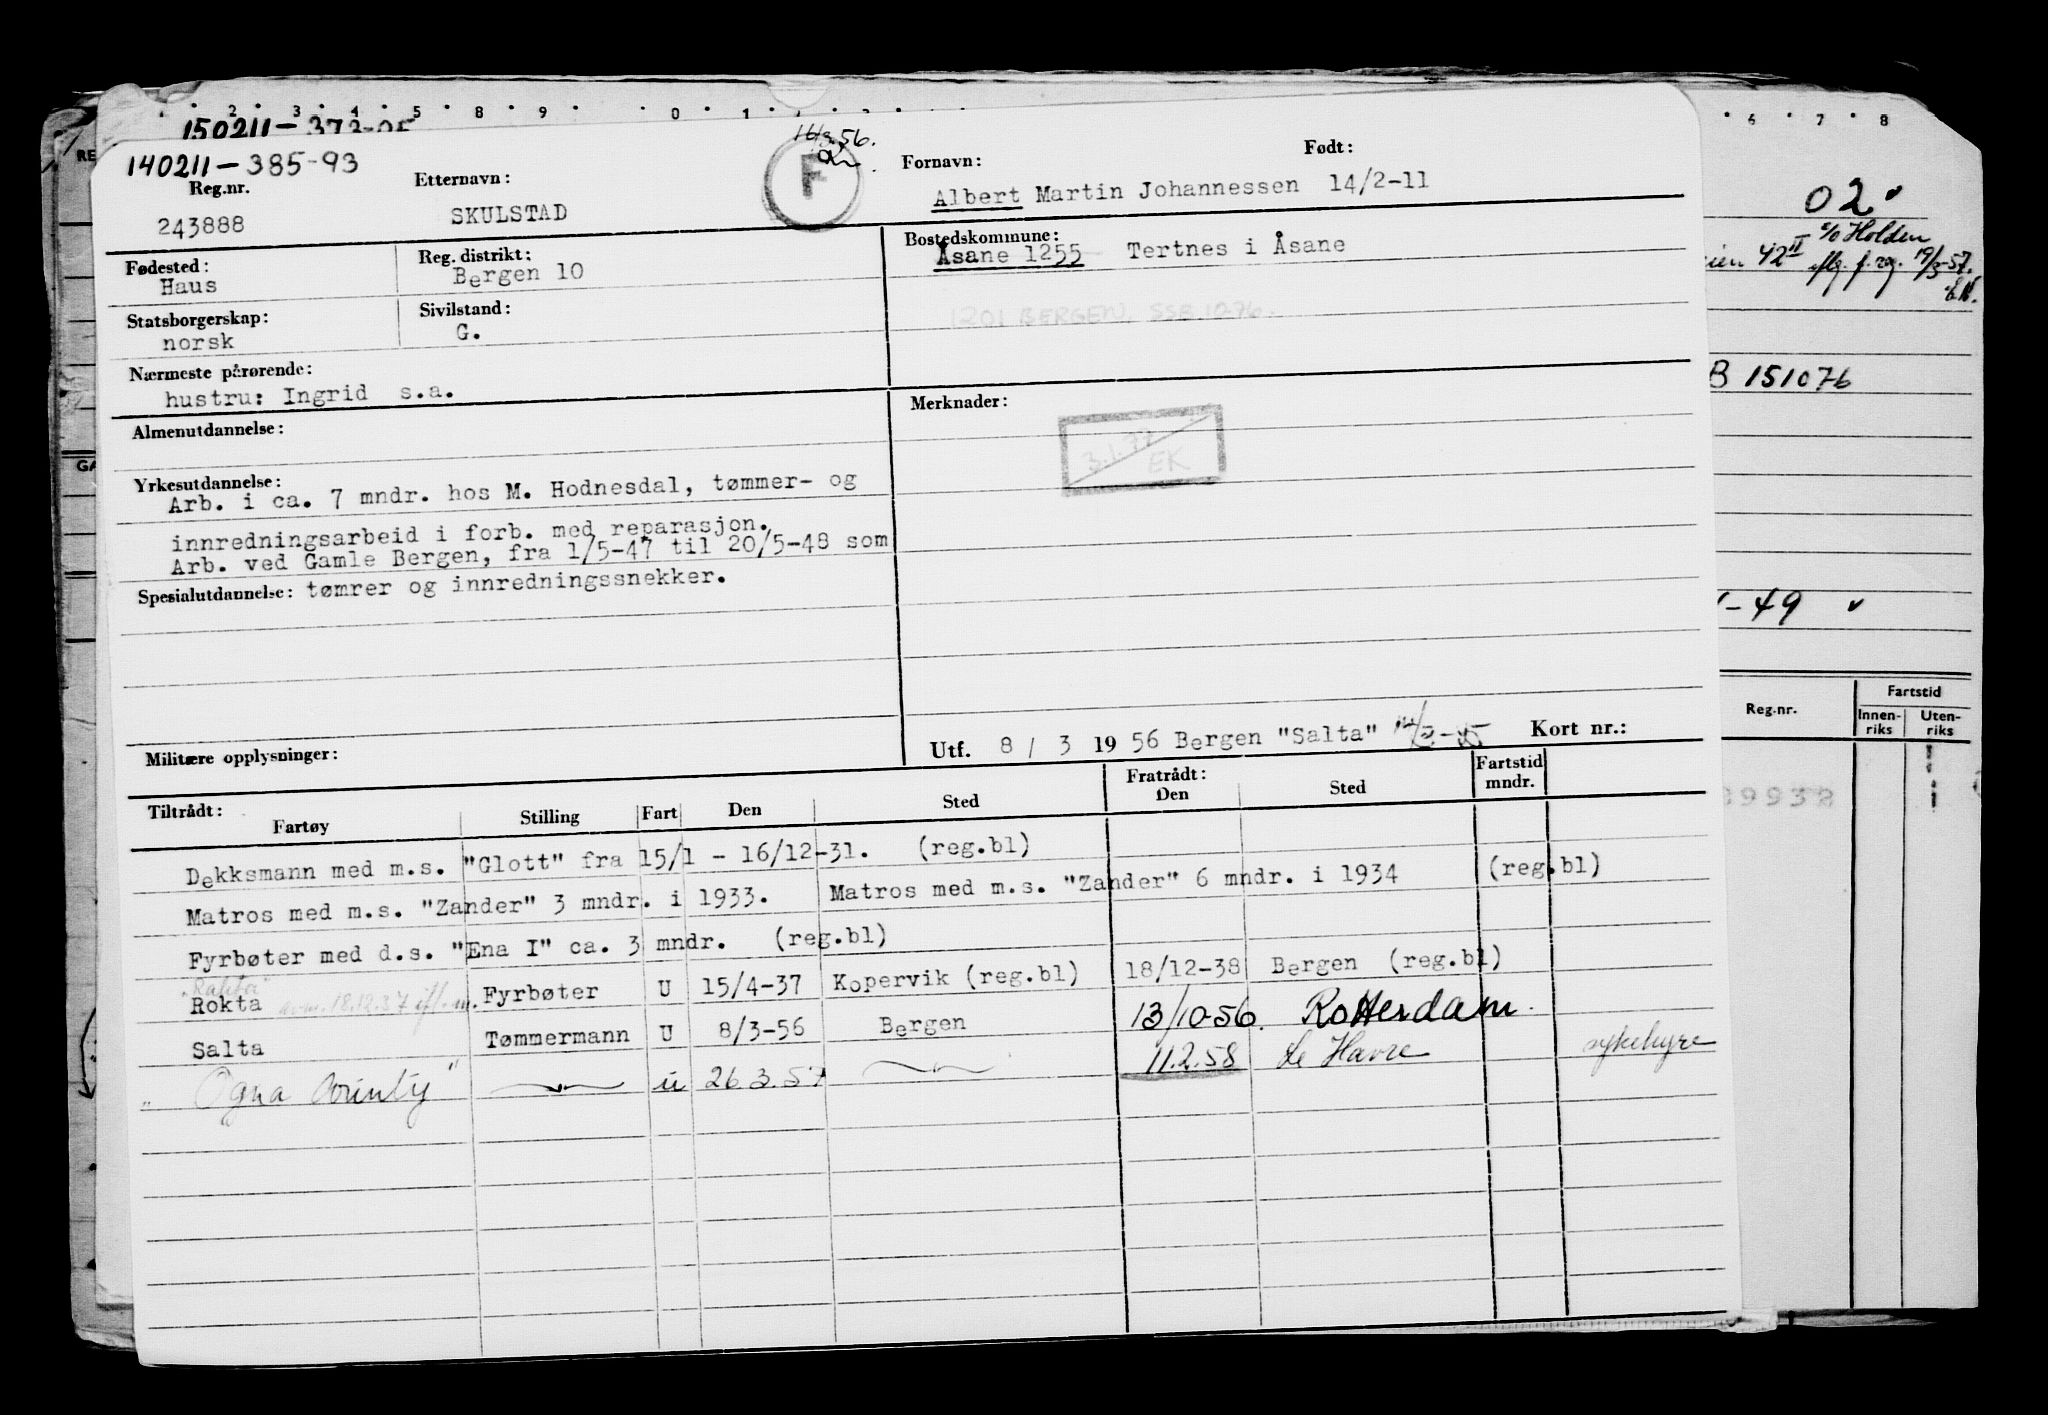 2 3 4 5 8 9 0 1 6 7 8
150211-373-05
140211-385-93
16/3.56.
F
Reg.nr.
Etternavn:
Fornavn:
Født:
243888
SKULSTAD
Albert Martin Johannessen 14/2-11
Fødested:
Haus
Reg. distrikt:
Bergen 10
Bostedskommune:
Åsane 1255 Tertnes i Åsane
Statsborgerskap:
norsk
Sivilstand:
G.
1201 BERGEN. SSB 1076.
Nærmeste pårørende:
hustru: Ingrid s.a.
Almenutdannelse:
Merknader:
3.1.77
EK
Yrkesutdannelse:
Arb. i ca. 7 mndr. hos M. Hodnesdal, tømmer- og
innredningsarbeid i forb. med reparasjon.
Arb. ved Gamle Bergen, fra 1/5-47 til 20/5-48 som
Spesialutdannelse: tømrer og innredningssnekker.
Militære opplysninger:
Utf. 8 / 3 19 56 Bergen "Salta" Kort nr.:
Tiltrådt:
Fratrådt:
Fartøy Stilling Fart Den Sted Den Sted Fartstid mndr.
Dekksmann med m.s. "Glott" fra 15/1 - 16/12-31. (reg.bl)
Matros med m.s. "Zander" 3 mndr. i 1933. Matros med m.s. "Zander" 6 mndr. i 1934 (reg.bl)
Fyrbøter med d.s. "Ena I" ca. 3 mndr. (reg.bl)
Rokta 18.12.37 Fyrbøter U 15/4-37 Kopervik (reg.bl) 18/12-38 Bergen (reg.bl)
Salta Tømmermann U 8/3-56 Bergen 13/10-56. Rotterdam.
"Ogna County" u 26.3.57 11.2.58 Le Havre sykehyre
02
c/o Holden
42 II f. 19/3-57.
B 151076
-49
Reg.nr.
Fartstid
Innen-riks
Uten-riks
9932
RE
GA